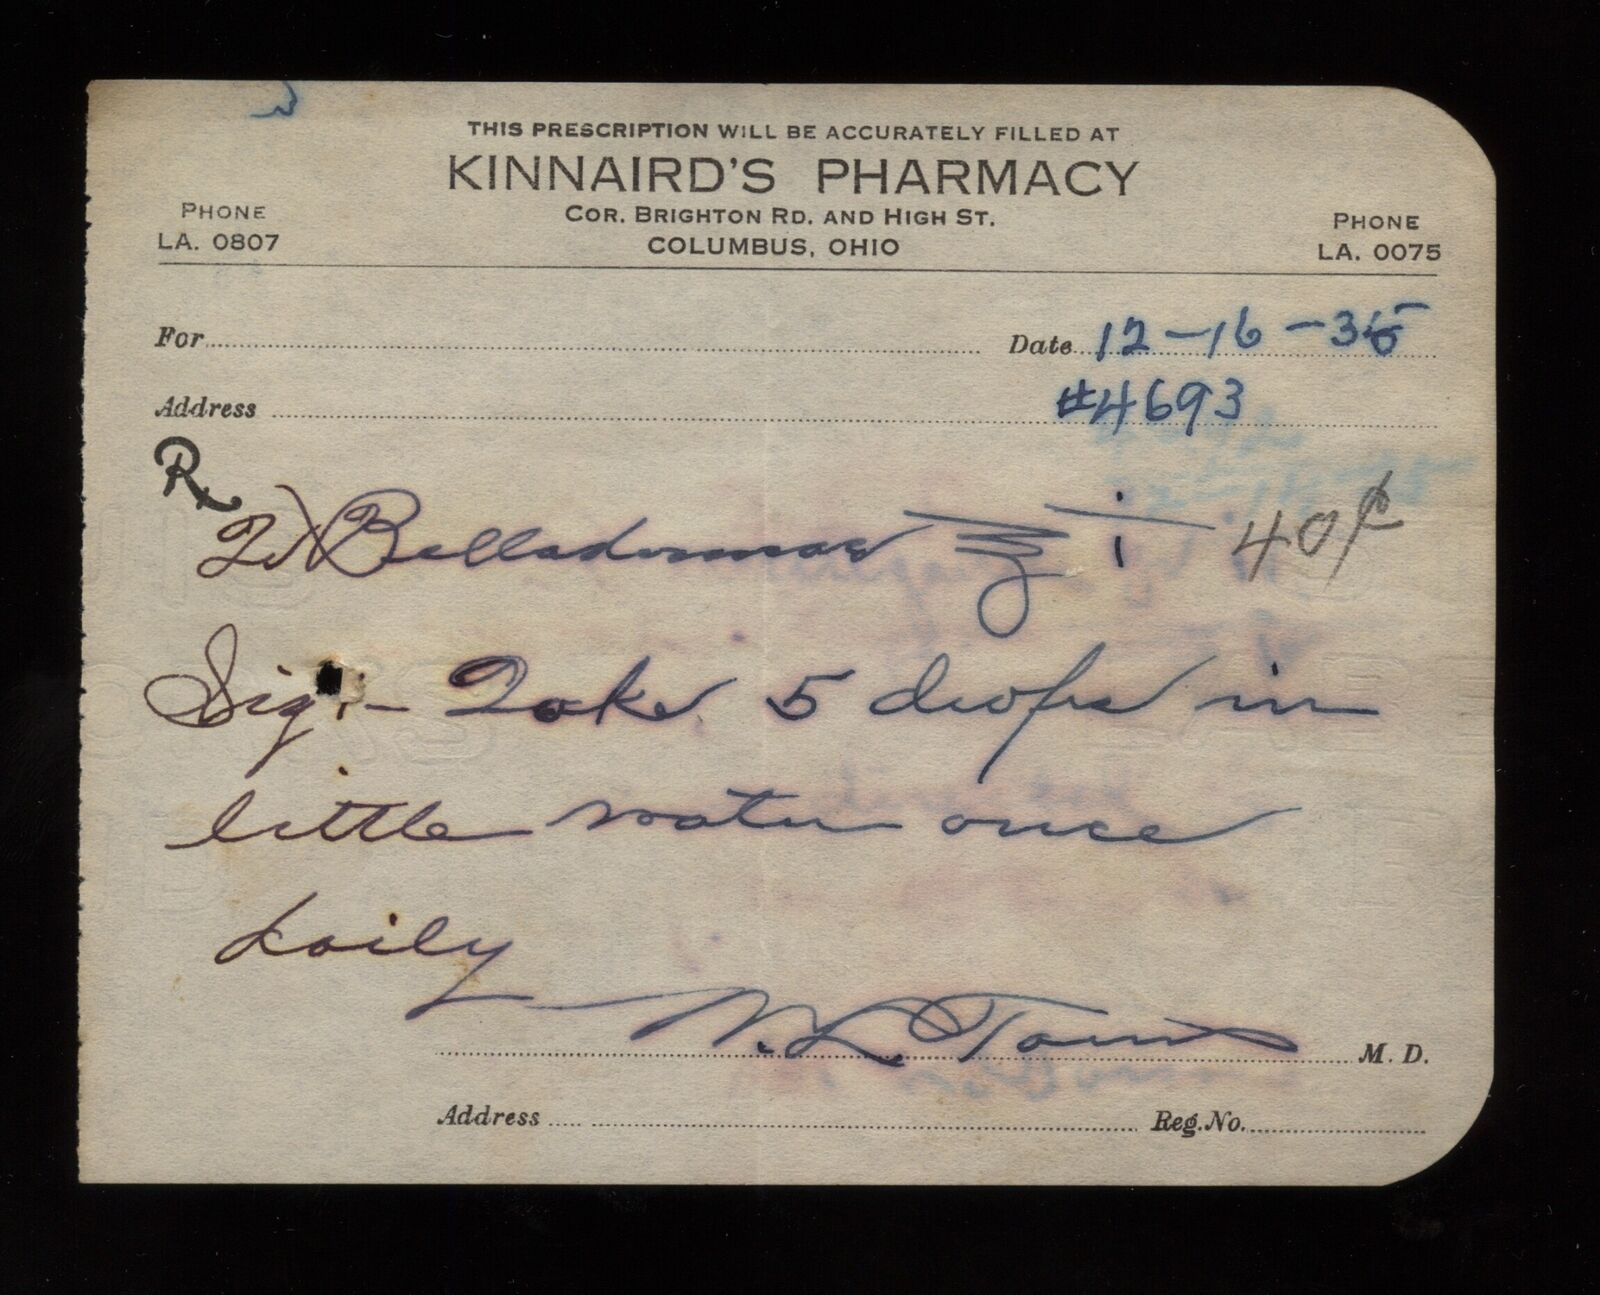 THIS PRESCRIPTION WILL BE ACCURATELY FILLED AT
KINNAIRD'S PHARMACY
COR. BRIGHTON RD. AND HIGH ST.
COLUMBUS, OHIO
PHONE
LA. 0807
PHONE
LA. 0075
For
Date 12-16-35
Address
#4693
Rx
Belladonnae ℥ i 40¢
Sig:- Take 5 drops in
little water once
daily
M. D.
Address
Reg. No.